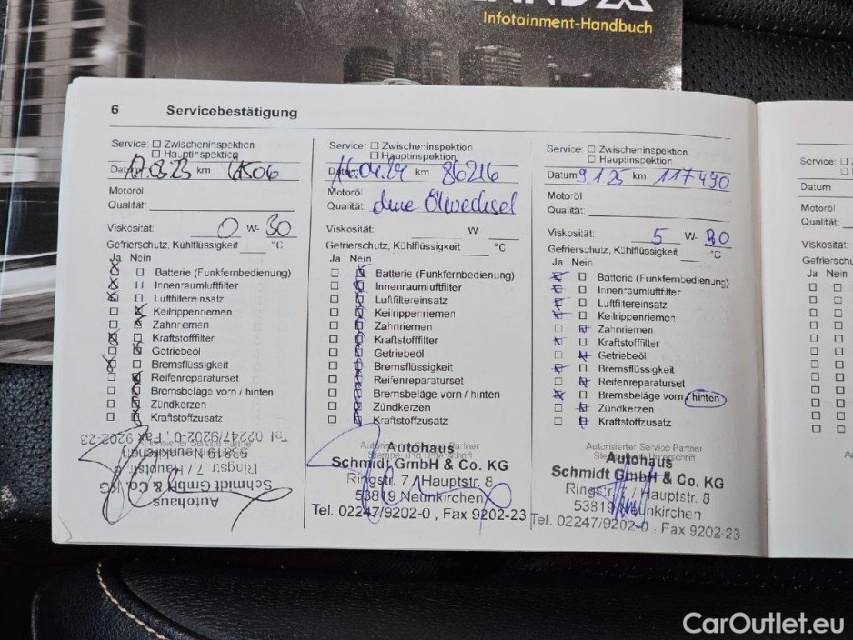 Infotainment-Handbuch
6 Servicebestätigung
Service: ☐ Zwischeninspektion
☐ Hauptinspektion
Datum .03.23 km
Motoröl
Qualität:
Viskosität: 0 W- 30
Gefrierschutz, Kühlflüssigkeit °C
Ja Nein
☒ ☐ Batterie (Funkfernbedienung)
☒ ☐ Innenraumluftfilter
☒ ☐ Luftfiltereinsatz
☐ ☒ Keilrippenriemen
☐ ☒ Zahnriemen
☒ ☐ Kraftstofffilter
☐ ☒ Getriebeöl
☒ ☐ Bremsflüssigkeit
☐ ☒ Reifenreparaturset
☐ ☒ Bremsbeläge vorn / hinten
☐ ☒ Zündkerzen
☐ ☒ Kraftstoffzusatz
Autohaus
Schmidt GmbH & Co. KG
Ringstr. 7 / Hauptstr. 8
53819 Neunkirchen
Tel. 02247/9202-0, Fax 9202-23
Service: ☐ Zwischeninspektion
☐ Hauptinspektion
Datum 16.04.24 km 86216
Motoröl
Qualität: ohne Ölwechsel
Viskosität: W
Gefrierschutz, Kühlflüssigkeit °C
Ja Nein
☐ ☒ Batterie (Funkfernbedienung)
☐ ☒ Innenraumluftfilter
☐ ☒ Luftfiltereinsatz
☐ ☒ Keilrippenriemen
☐ ☒ Zahnriemen
☐ ☒ Kraftstofffilter
☐ ☒ Getriebeöl
☐ ☒ Bremsflüssigkeit
☐ ☒ Reifenreparaturset
☐ ☒ Bremsbeläge vorn / hinten
☐ ☒ Zündkerzen
☐ ☒ Kraftstoffzusatz
Autohaus
Schmidt GmbH & Co. KG
Ringstr. 7 / Hauptstr. 8
53819 Neunkirchen
Tel. 02247/9202-0 , Fax 9202-23
Service: ☐ Zwischeninspektion
☐ Hauptinspektion
Datum 9.1.25 km 117490
Motoröl
Qualität:
Viskosität: 5 W- 30
Gefrierschutz, Kühlflüssigkeit °C
Ja Nein
☒ ☐ Batterie (Funkfernbedienung)
☒ ☐ Innenraumluftfilter
☒ ☐ Luftfiltereinsatz
☒ ☐ Keilrippenriemen
☐ ☒ Zahnriemen
☒ ☐ Kraftstofffilter
☐ ☒ Getriebeöl
☒ ☐ Bremsflüssigkeit
☐ ☒ Reifenreparaturset
☒ ☐ Bremsbeläge vorn / hinten
☐ ☒ Zündkerzen
☐ ☒ Kraftstoffzusatz
Autorisierter Service Partner
Autohaus
Schmidt GmbH & Co. KG
Ringstr. 7 / Hauptstr. 8
53819 Neunkirchen
Tel. 02247/9202-0 , Fax 9202-23
Service: ☐
Datum
Motoröl
Qualität:
Viskosität:
Ja Nein
CarOutlet.eu